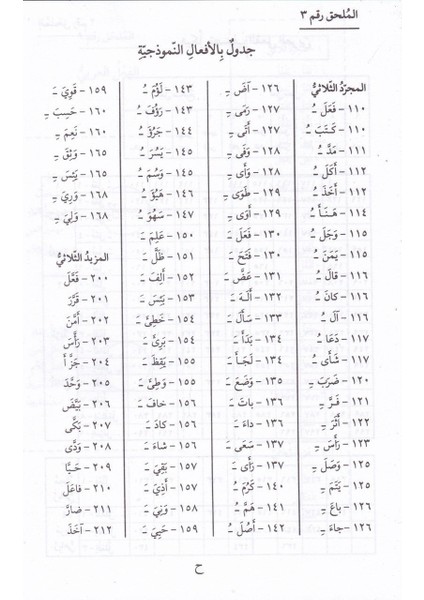 المُلحق رقم ٣
جدولٌ بِالأفعالِ النّموذجيّةِ
المجرّدُ الثّلاثيُّ
١١٠ – فَعَلَ ـُ
١١٠ – كَتَبَ ـُ
١١١ – مَدَّ ـُ
١١٢ – أَكَلَ ـُ
١١٢ – أَخَذَ ـُ
١١٤ – هَنَأَ ـُ
١١٥ – وَجَلَ ـُ
١١٥ – يَمَنَ ـُ
١١٦ – قالَ ـُ
١١٦ – كانَ ـُ
١١٦ – آلَ ـُ
١١٧ – دَعَا ـُ
١١٧ – شَأَى ـُ
١٢٠ – ضَرَبَ ـِ
١٢١ – فَرَّ ـِ
١٢٢ – أَثَرَ ـِ
١٢٣ – رَأَسَ ـِ
١٢٥ – وَصَلَ ـِ
١٢٥ – يَتَمَ ـِ
١٢٦ – باعَ ـِ
١٢٦ – جاءَ ـِ
١٢٦ – آضَ ـِ
١٢٧ – رَمَى ـِ
١٢٧ – أَتَى ـِ
١٢٨ – وَفَى ـِ
١٢٨ – وَأَى ـِ
١٢٩ – طَوَى ـِ
١٢٩ – أَوَى ـِ
١٣٠ – فَعَلَ ـَ
١٣٠ – فَتَحَ ـَ
١٣١ – عَضَّ ـَ
١٣٢ – أَلَـهَ ـَ
١٣٢ – سَأَلَ ـَ
١٣٤ – بَدَأَ ـَ
١٣٤ – لَجَأَ ـَ
١٣٥ – وَضَعَ ـَ
١٣٦ – باتَ ـَ
١٣٦ – داءَ ـَ
١٣٧ – سَعَى ـَ
١٣٧ – رَأَى ـَ
١٤٠ – كَرُمَ ـُ
١٤١ – هَمَّ ـُ
١٤٢ – أَصُلَ ـُ
١٤٣ – لَؤُمَ ـُ
١٤٣ – رَؤُفَ ـُ
١٤٤ – جَرُؤَ ـُ
١٤٥ – يَسُرَ ـُ
١٤٥ – وَسُمَ ـُ
١٤٦ – هَيُؤَ ـُ
١٤٧ – سَهُوَ ـُ
١٥٠ – عَلِمَ ـَ
١٥١ – ظَلَّ ـَ
١٥٢ – أَلِفَ ـَ
١٥٣ – يَئِسَ ـَ
١٥٤ – خَطِئَ ـَ
١٥٤ – بَرِئَ ـَ
١٥٥ – يَقِظَ ـَ
١٥٥ – وَطِئَ ـَ
١٥٦ – خافَ ـَ
١٥٦ – كادَ ـَ
١٥٦ – شاءَ ـَ
١٥٧ – بَقِيَ ـَ
١٥٧ – أَذِيَ ـَ
١٥٨ – وَنِيَ ـَ
١٥٩ – حَيِيَ ـَ
١٥٩ – قَوِيَ ـَ
١٦٠ – حَسِبَ ـِ
١٦٠ – نَعِمَ ـِ
١٦٥ – وَثِقَ ـِ
١٦٥ – يَئِسَ ـِ
١٦٨ – وَرِيَ ـِ
١٦٨ – وَلِيَ ـِ
المزيدُ الثّلاثيُّ
٢٠٠ – فَعَّلَ
٢٠١ – قَرَّرَ
٢٠٢ – أَمَّنَ
٢٠٣ – رَأَّسَ
٢٠٤ – جَزَّأَ
٢٠٥ – وَحَّدَ
٢٠٦ – بَيَّضَ
٢٠٧ – بَكَّى
٢٠٨ – وَدَّى
٢٠٩ – حَيَّا
٢١٠ – فاعَلَ
٢١١ – ضارَّ
٢١٢ – آخَذَ
ح